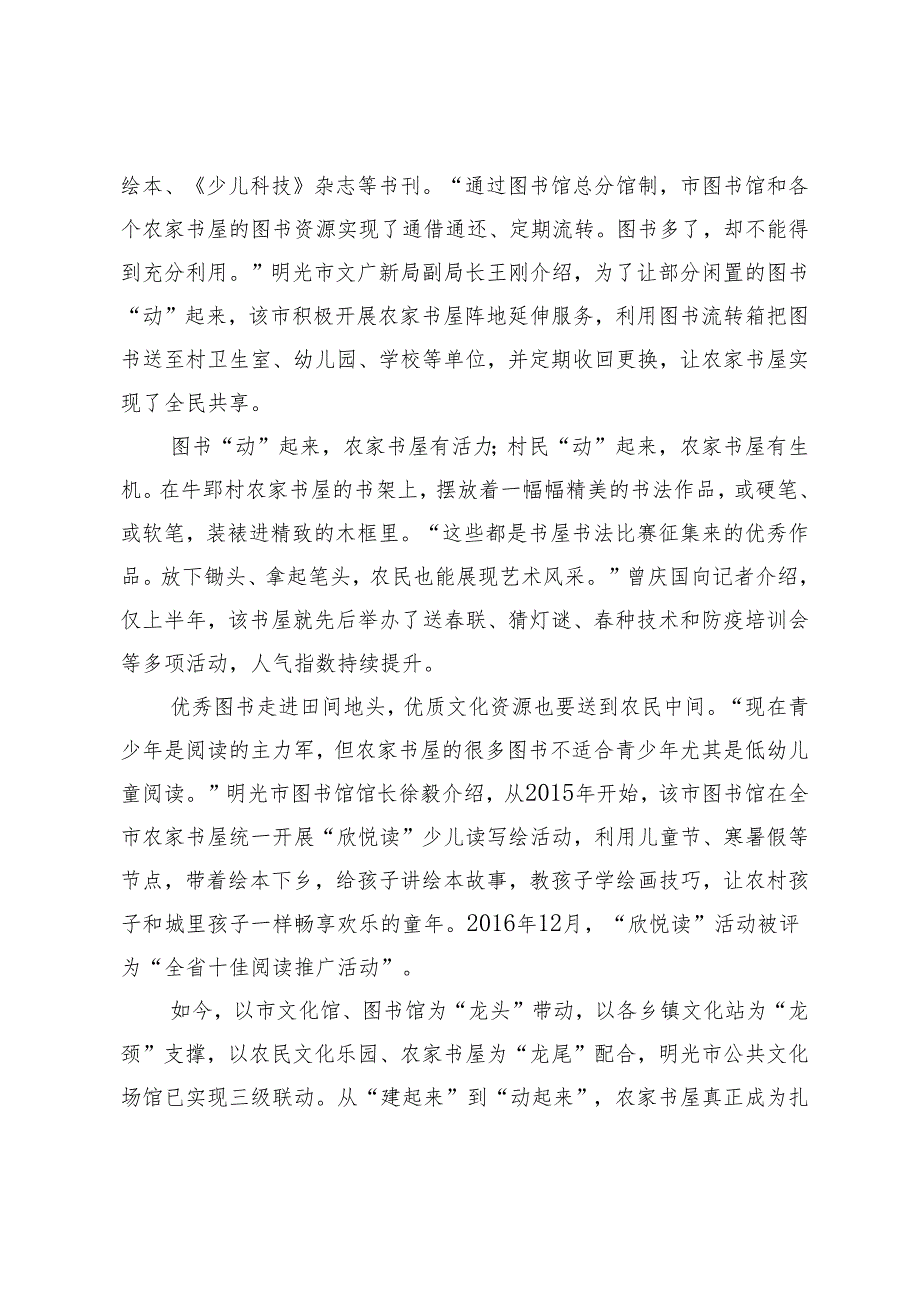 绘本、《少儿科技》杂志等书刊。“通过图书馆总分馆制，市图书馆和各
个农家书屋的图书资源实现了通借通还、定期流转。图书多了，却不能得
到充分利用。”明光市文广新局副局长王刚介绍，为了让部分闲置的图书
“动”起来，该市积极开展农家书屋阵地延伸服务，利用图书流转箱把图
书送至村卫生室、幼儿园、学校等单位，并定期收回更换，让农家书屋实
现了全民共享。
图书“动”起来，农家书屋有活力；村民“动”起来，农家书屋有生
机。在牛郢村农家书屋的书架上，摆放着一幅幅精美的书法作品，或硬笔、
或软笔，装裱进精致的木框里。“这些都是书屋书法比赛征集来的优秀作
品。放下锄头、拿起笔头，农民也能展现艺术风采。”曾庆国向记者介绍，
仅上半年，该书屋就先后举办了送春联、猜灯谜、春种技术和防疫培训会
等多项活动，人气指数持续提升。
优秀图书走进田间地头，优质文化资源也要送到农民中间。“现在青
少年是阅读的主力军，但农家书屋的很多图书不适合青少年尤其是低幼儿
童阅读。”明光市图书馆馆长徐毅介绍，从2015年开始，该市图书馆在全
市农家书屋统一开展“欣悦读”少儿读写绘活动，利用儿童节、寒暑假等
节点，带着绘本下乡，给孩子讲绘本故事，教孩子学绘画技巧，让农村孩
子和城里孩子一样畅享欢乐的童年。2016年12月，“欣悦读”活动被评
为“全省十佳阅读推广活动”。
如今，以市文化馆、图书馆为“龙头”带动，以各乡镇文化站为“龙
颈”支撑，以农民文化乐园、农家书屋为“龙尾”配合，明光市公共文化
场馆已实现三级联动。从“建起来”到“动起来”，农家书屋真正成为扎